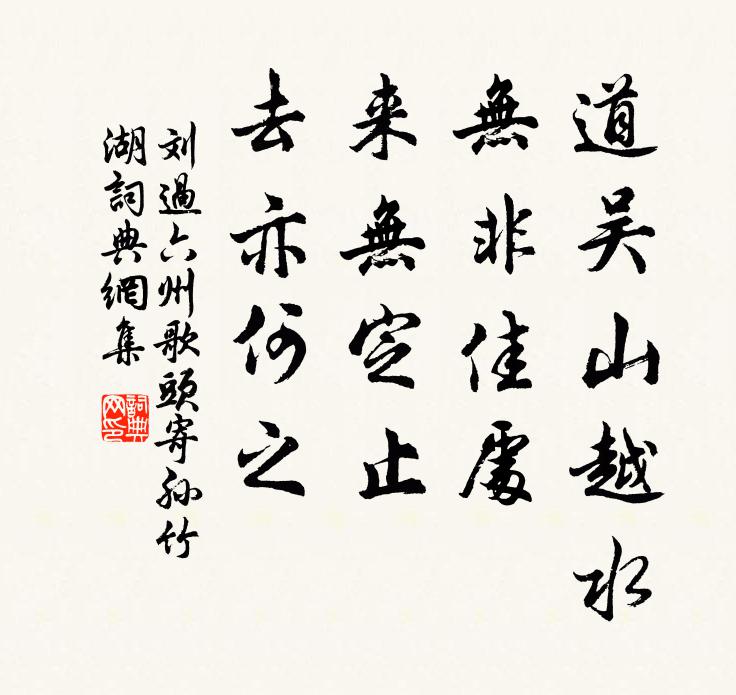 道吴山越水
無非佳處
来無定止
去亦何之
刘過六州歌頭寄孙竹
湖詞典網集
詞典
网印